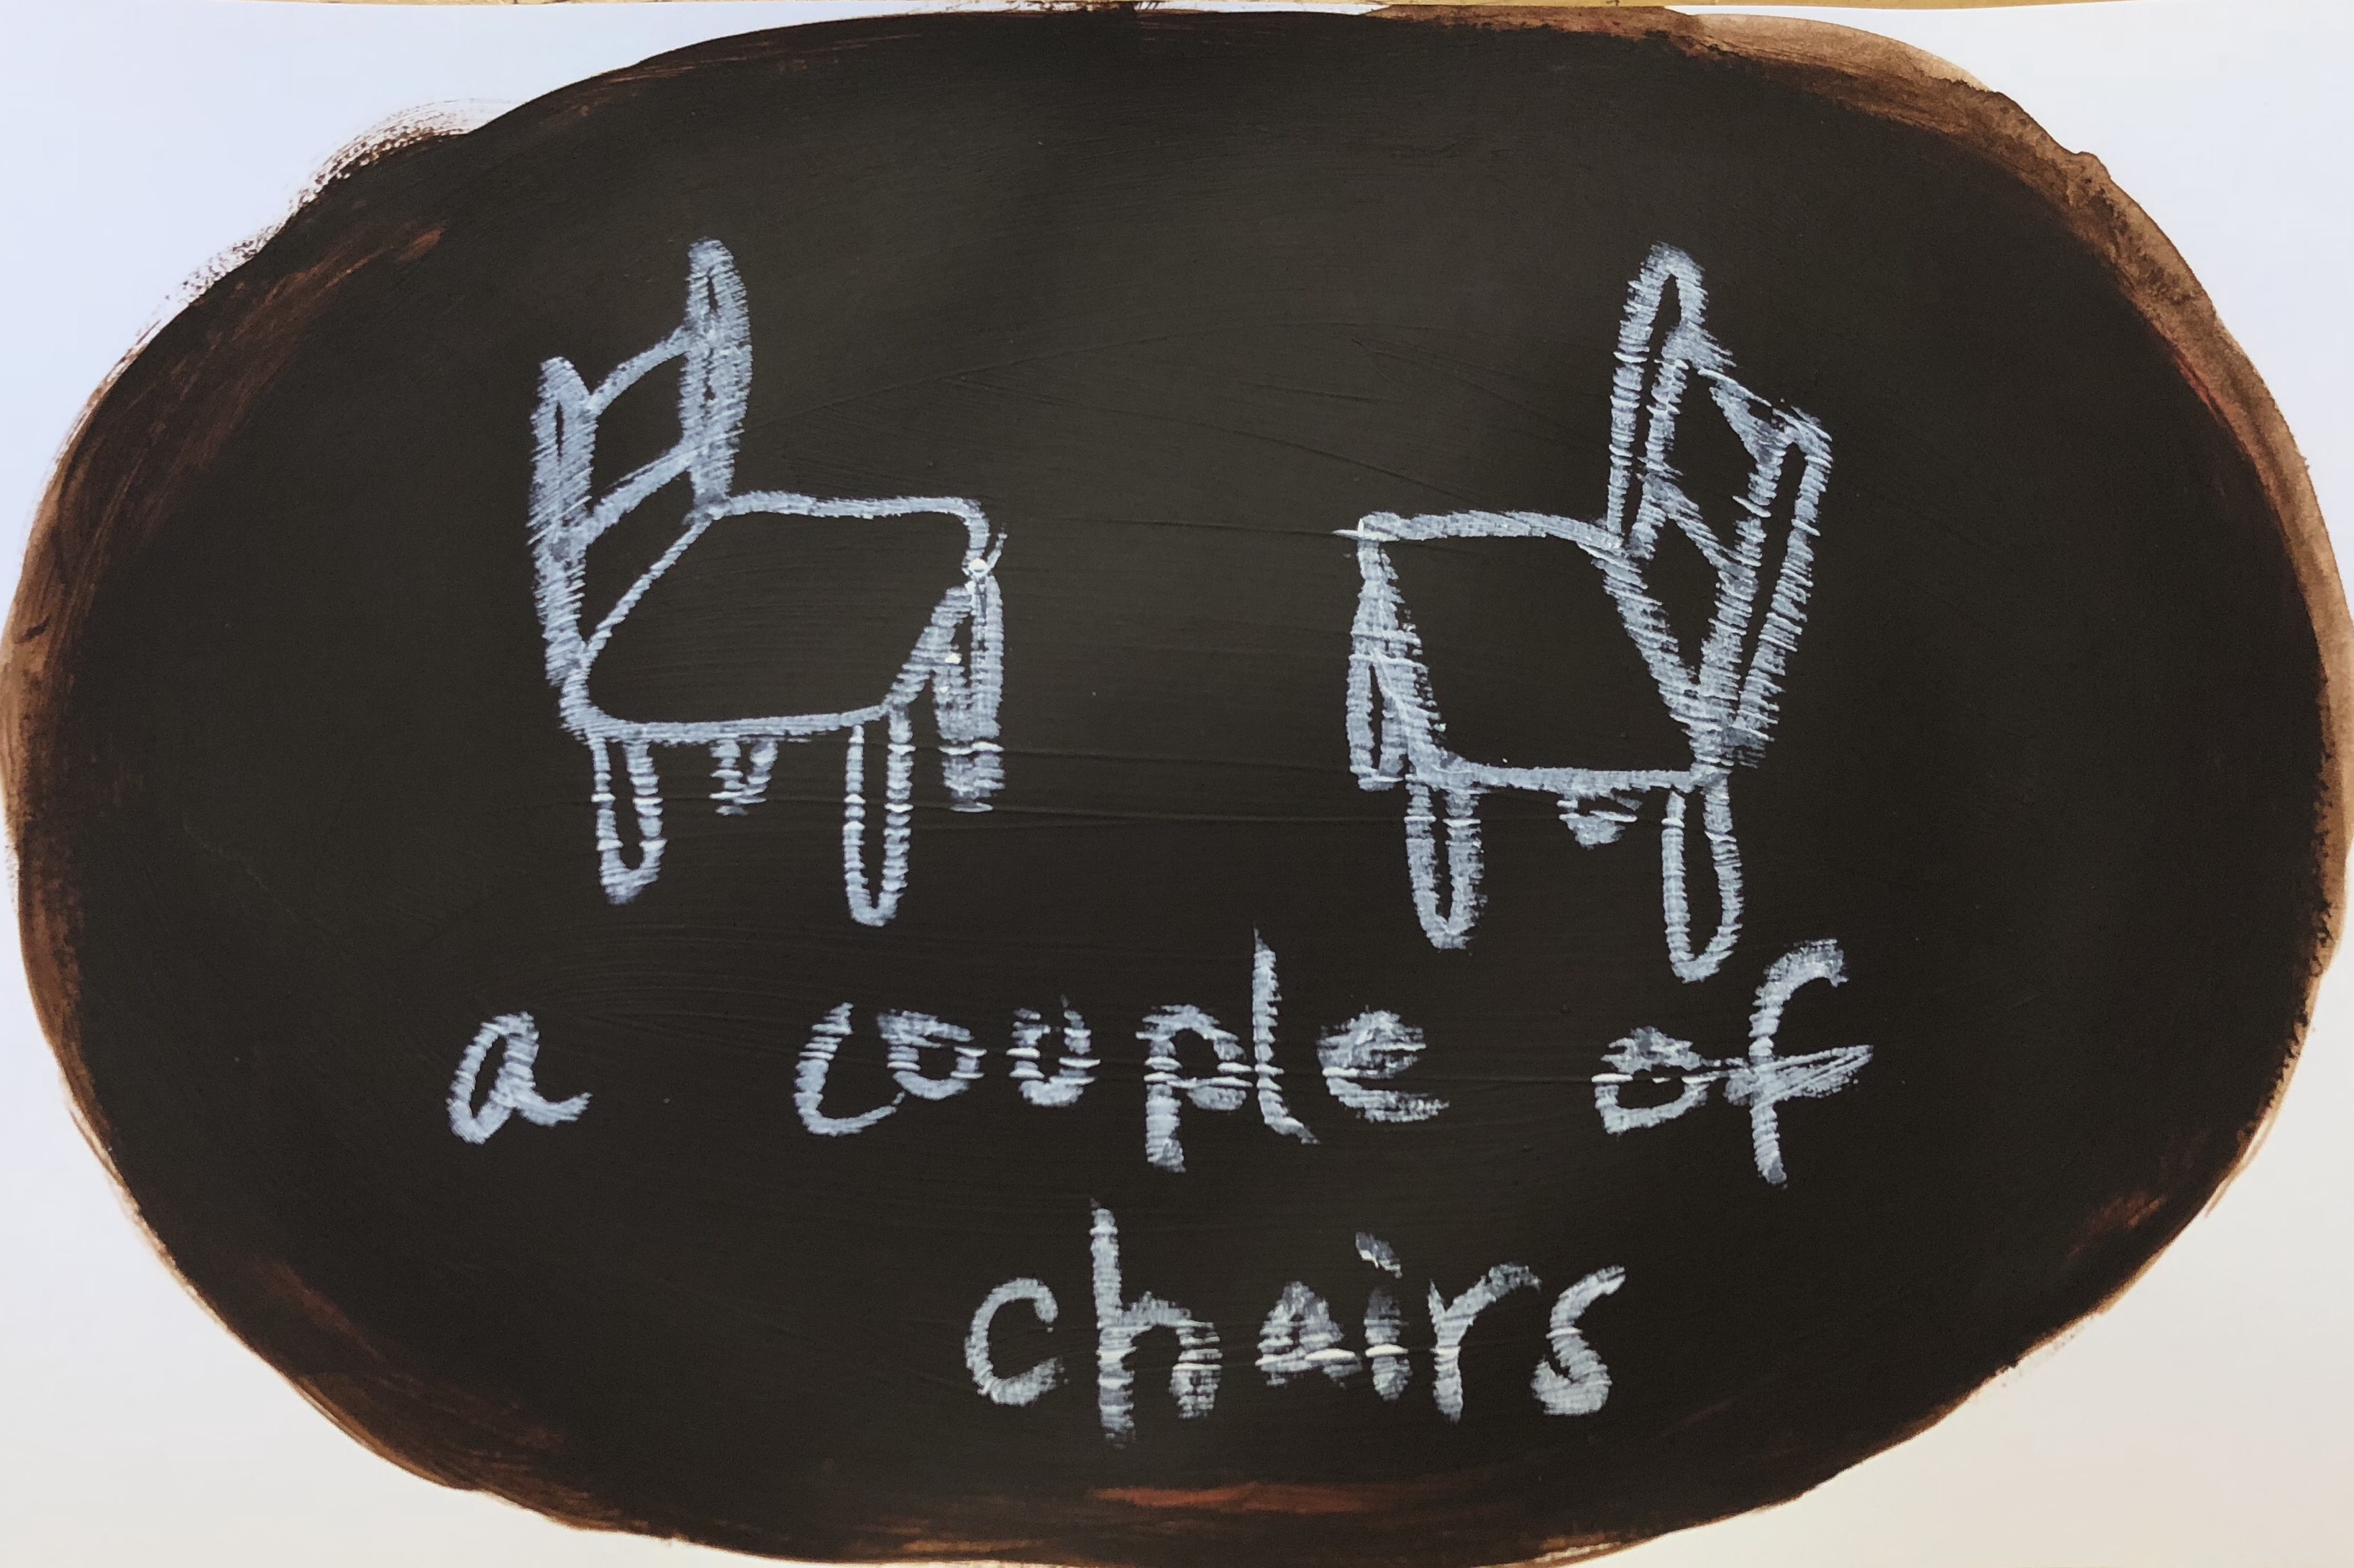 a couple of
chairs